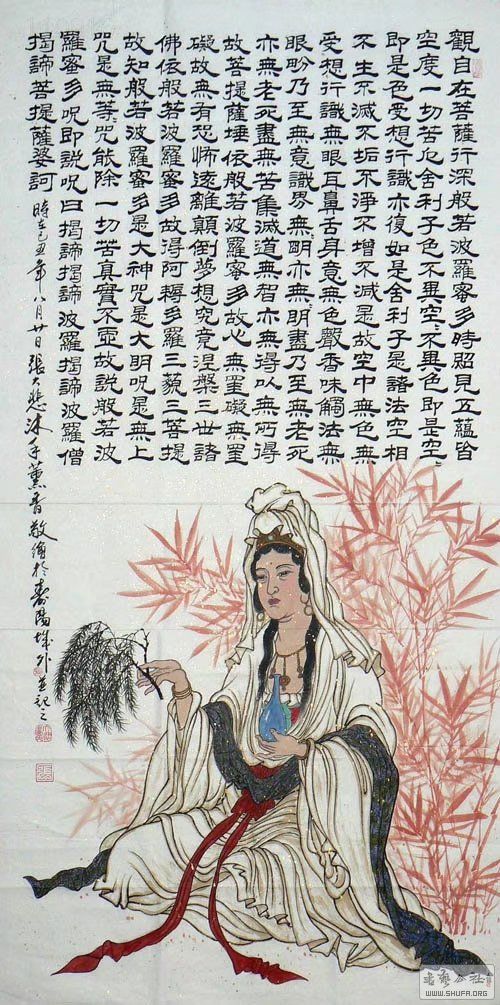 觀自在菩薩行深般若波羅蜜多時照見五蘊皆
空度一切苦厄舍利子色不異空〻不異色〻即是空〻
即是色受想行識亦復如是舍利子是諸法空相
不生不滅不垢不淨不增不減是故空中無色無
受想行識無眼耳鼻舌身意無色聲香味觸法無
眼畍乃至無意識界無〻明亦無〻明盡乃至無老死
亦無老死盡無苦集滅道無智亦無得以無所得
故菩提薩埵依般若波羅蜜多故心無罣礙無罣
礙故無有恐怖遠離顛倒夢想究竟涅槃三世諸
佛依般若波羅蜜多故得阿耨多羅三藐三菩提
故知般若波羅蜜多是大神咒是大明咒是無上
咒是無等〻咒能除一切苦真實不虛故說般若波
羅蜜多咒即說咒曰揭諦揭諦波羅揭諦波羅僧
揭諦菩提薩婆訶
時在己丑年八月廿日張大悲沐手薰香敬繪於壽陽城外並記之
WWW.SHUFA.ORG